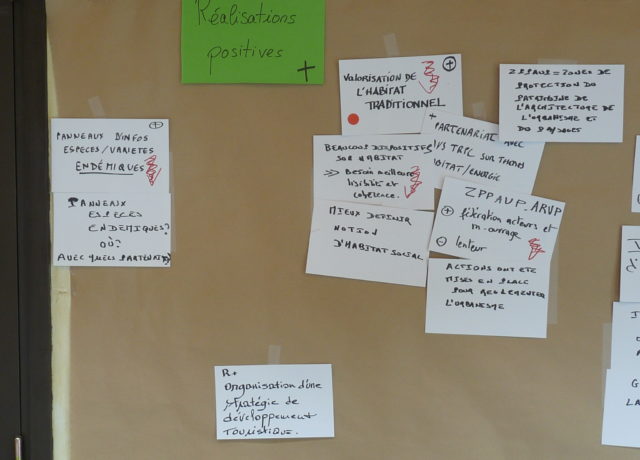 Réalisations
positives
+
PANNEAUX D'INFOS
ESPECES/VARIETES
ENDÉMIQUES
+
PANNEAUX
ESPECES
ENDEMIQUES?
OÙ?
AVEC QUELS PARTENAIRES?
VALORISATION DE
L'HABITAT
TRADITIONNEL
+
BEAUCOUP DISPOSITIFS
SUR HABITAT
>> Besoin meilleure
lisibilité et
cohérence.
MIEUX DEFINIR
NOTION
D'HABITAT SOCIAL
+
PARTENARIAT AVEC
SUR THEMES
HABITAT/ENERGIE
ZPPAUP = ZONES DE
PROTECTION DU
PATRIMOINE DE
L'ARCHITECTURE DE
L'URBANISME ET
DU PAYSAGE
ZPPAUP-ARVP
+ fédération acteurs et
m-ouvrage
- lenteur
ACTIONS ONT ETE
MISES EN PLACE
POUR REGLEMENTER
L'URBANISME
R+
Organisation d'une
stratégie de
développement
TOURISTIQUE.